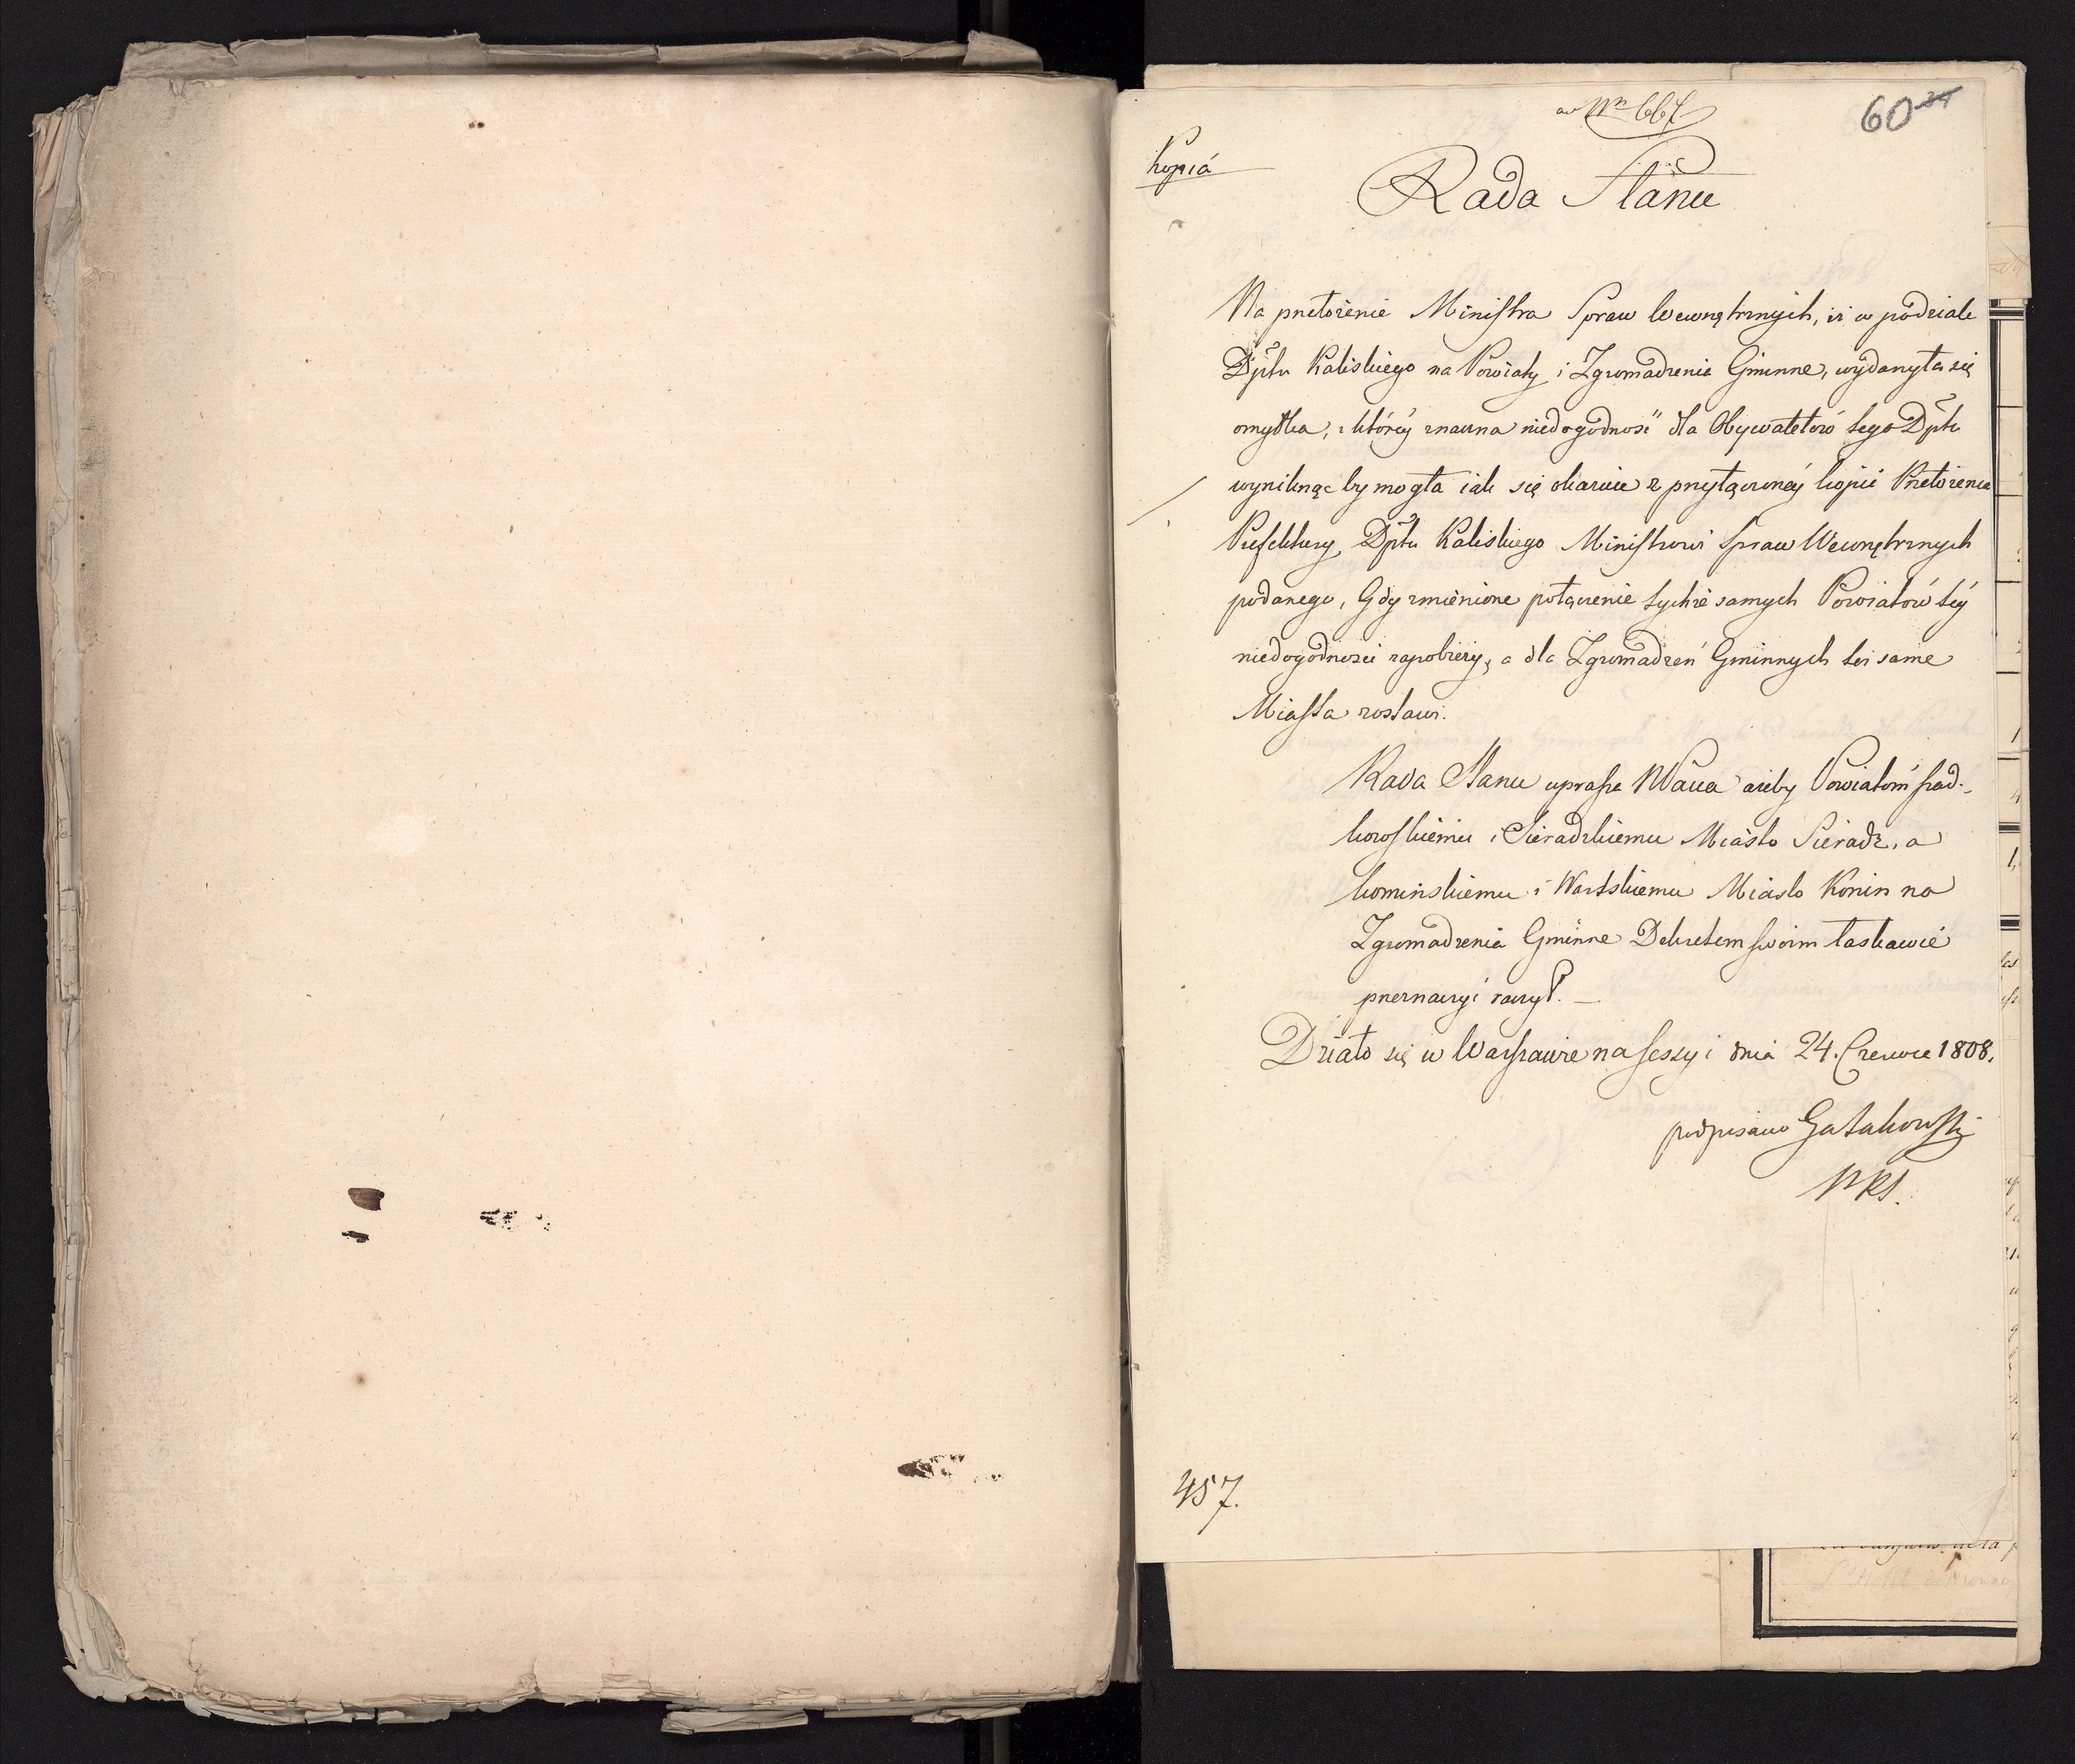 ad Nrm 667
60 34
kopiá
Rada Stanu
Na przełożenie Ministra Spraw Wewnętrznych, iż w podziale
Dptu Kaliskiego na Powiaty i Zgromadzenia Gminne, wydarzyła się
omyłka, z którey znaczna niedogodność dla Obywatelów tego Dptu
wyniknąć by mogła iak się okazuie z przyłączoney kopii Przełożenia
Prefektury Dptu Kaliskiego Ministrowi Spraw Wewnętrznych
podanego, Gdy zmienione połączenie tychże samych Powiatów tey
niedogodności zapobieży, a dla Zgromadzeń Gminnych też same
Miasta zostawi.
Rada Stanu uprasza ażeby Powiatom szad-
kowskiemu i Sieradzkiemu Miasto Sieradz, a
konińskiemu i Wartskiemu Miasto Konin na
Zgromadzenia Gminne Dekretem swoim łaskawie
przeznaczyć raczył. —
Działo się w Warszawie na sessyi dnia 24. Czerwca 1808.
podpisano Gutakowski
PRS.
457.